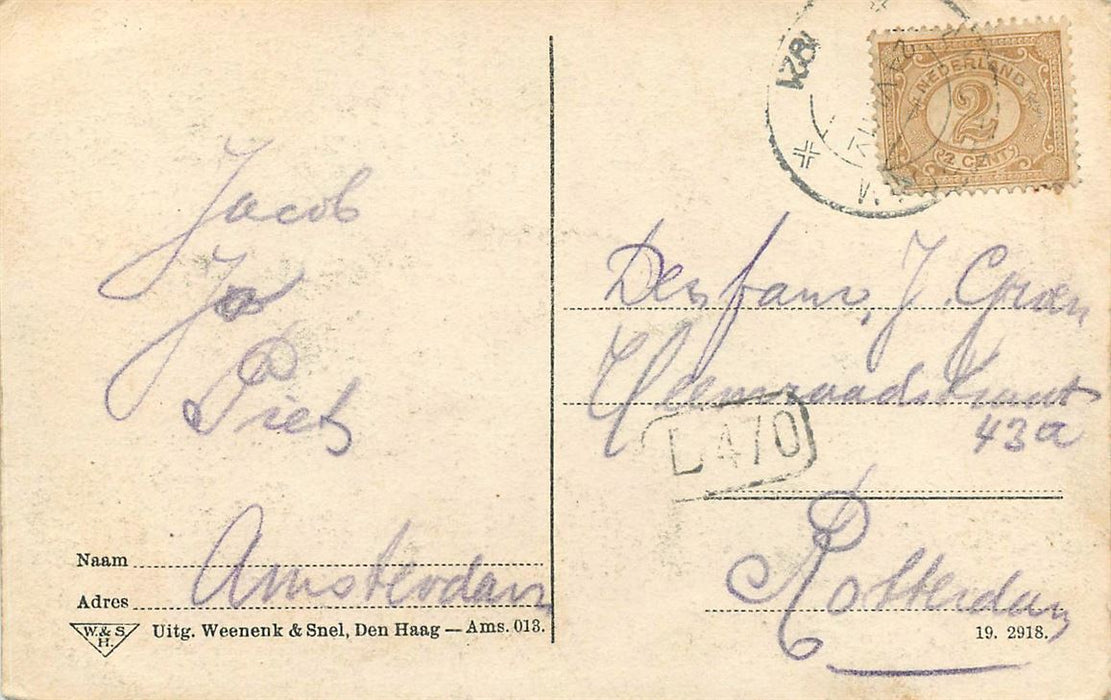 Jacob
Jo
Piet
Naam Amsterdam
Adres
W. & S.
H.
Uitg. Weenenk & Snel, Den Haag — Ams. 013.
821
NEDERLAND
2
2 CENT
Den fam. J. Groen
Heemraadstraat
43a
L 470
Rotterdam
19. 2918.